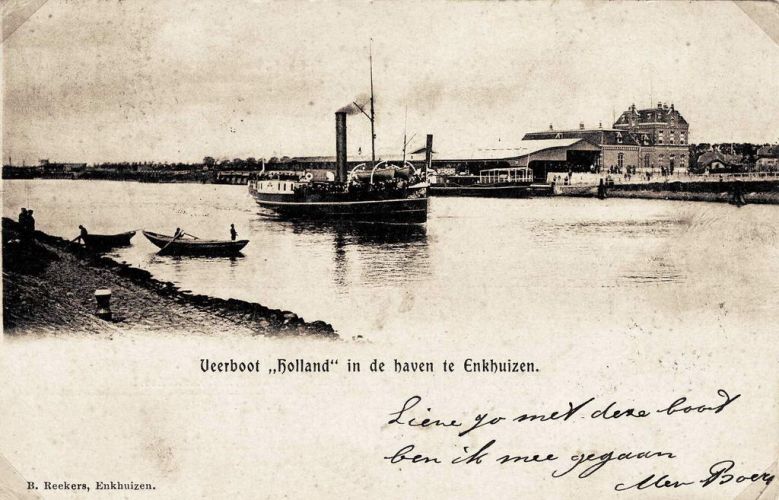 Veerboot „Holland" in de haven te Enkhuizen.
met deze boot
ben ik mee gegaan
B. Reekers, Enkhuizen.